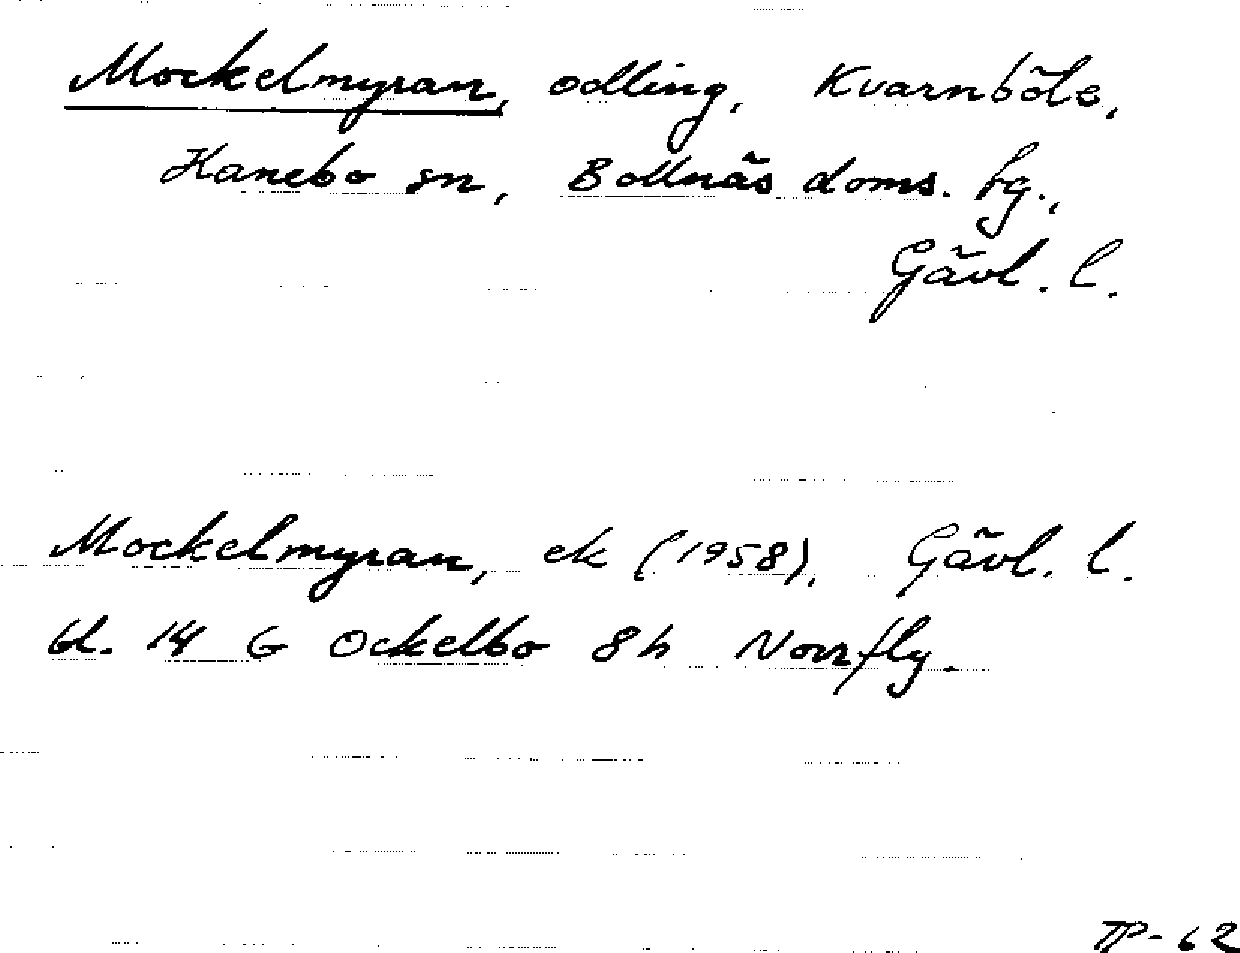 Mockelmyran, odling, Kvarnböle,
Hanebo sn, Bollnäs doms. fg.,
Gävl. l.
Mockelmyran, ek (1958), Gävl. l.
bl. 14 G Ockelbo 8 h Norrfly.
TP-62